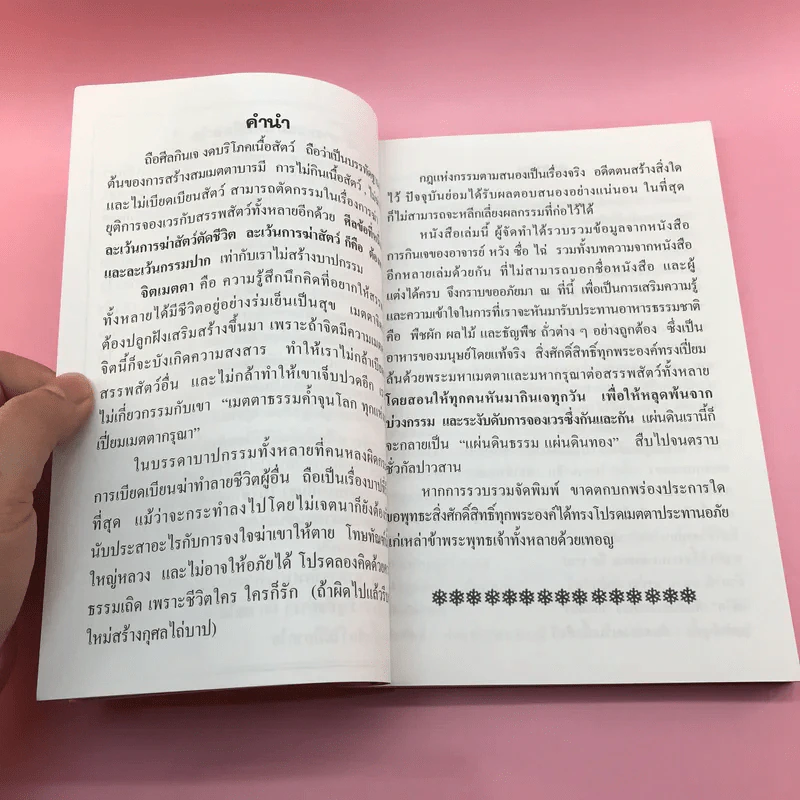 คำนำ
ถือศีลกินเจ งดบริโภคเนื้อสัตว์ ถือว่าเป็นบรรทัด
ต้นของการสร้างสมเมตตาบารมี การไม่กินเนื้อสัตว์
และไม่เบียดเบียนสัตว์ สามารถตัดกรรมในเรื่องการ
ยุติการจองเวรกับสรรพสัตว์ทั้งหลายอีกด้วย ศีลข้อ
ละเว้นการฆ่าสัตว์ตัดชีวิต ละเว้นการฆ่าสัตว์ ก็คือ ต้อง
และละเว้นกรรมปาก เท่ากับเราไม่สร้างบาปกรรม
จิตเมตตา คือ ความรู้สึกนึกคิดที่อยากให้
ทั้งหลายได้มีชีวิตอยู่อย่างร่มเย็นเป็นสุข เมตตา
ต้องปลูกฝังเสริมสร้างขึ้นมา เพราะถ้าจิตมีความ
จิตนี้ก็จะบังเกิดความสงสาร ทำให้เราไม่กล้า
สรรพสัตว์อื่น และไม่กล้าทำให้เขาเจ็บปวดอีก
ไม่เกี่ยวกรรมกับเขา “เมตตาธรรมค้ำจุนโลก ทุก
เปี่ยมเมตตากรุณา”
ในบรรดาบาปกรรมทั้งหลายที่คนหลงผิด
การเบียดเบียนฆ่าทำลายชีวิตผู้อื่น ถือเป็นเรื่องบาป
ที่สุด แม้ว่าจะกระทำลงไปโดยไม่เจตนาก็ยังต้อง
นับประสาอะไรกับการจงใจฆ่าเขาให้ตาย โทษทัณฑ์
ใหญ่หลวง และไม่อาจให้อภัยได้ โปรดลองคิดด้วย
ธรรมเถิด เพราะชีวิตใคร ใครก็รัก (ถ้าผิดไปแล้ว
ใหม่สร้างกุศลไถ่บาป)
กฎแห่งกรรมตามสนองเป็นเรื่องจริง อดีตตนสร้างสิ่งใด
ไว้ ปัจจุบันย่อมได้รับผลตอบสนองอย่างแน่นอน ในที่สุด
ก็ไม่สามารถจะหลีกเลี่ยงผลกรรมที่ก่อไว้ได้
หนังสือเล่มนี้ ผู้จัดทำได้รวบรวมข้อมูลจากหนังสือ
การกินเจของอาจารย์ หวัง ซื่อ ไฉ่ รวมทั้งบทความจากหนังสือ
อีกหลายเล่มด้วยกัน ที่ไม่สามารถบอกชื่อหนังสือ และผู้
แต่งได้ครบ จึงกราบขออภัยมา ณ ที่นี้ เพื่อเป็นการเสริมความรู้
และความเข้าใจในการที่เราจะหันมารับประทานอาหารธรรมชาติ
คือ พืชผัก ผลไม้ และธัญพืช ถั่วต่าง ๆ อย่างถูกต้อง ซึ่งเป็น
อาหารของมนุษย์โดยแท้จริง สิ่งศักดิ์สิทธิ์ทุกพระองค์ทรงเปี่ยม
ล้นด้วยพระมหาเมตตาและมหากรุณาต่อสรรพสัตว์ทั้งหลาย
โดยสอนให้ทุกคนหันมากินเจทุกวัน เพื่อให้หลุดพ้นจาก
บ่วงกรรม และระงับดับการจองเวรซึ่งกันและกัน แผ่นดินเรานี้ก็
จะกลายเป็น “แผ่นดินธรรม แผ่นดินทอง” สืบไปจนตราบ
ชั่วกัลปาวสาน
หากการรวบรวมจัดพิมพ์ ขาดตกบกพร่องประการใด
ขอพุทธะสิ่งศักดิ์สิทธิ์ทุกพระองค์ได้ทรงโปรดเมตตาประทานอภัย
แก่เหล่าข้าพระพุทธเจ้าทั้งหลายด้วยเทอญ